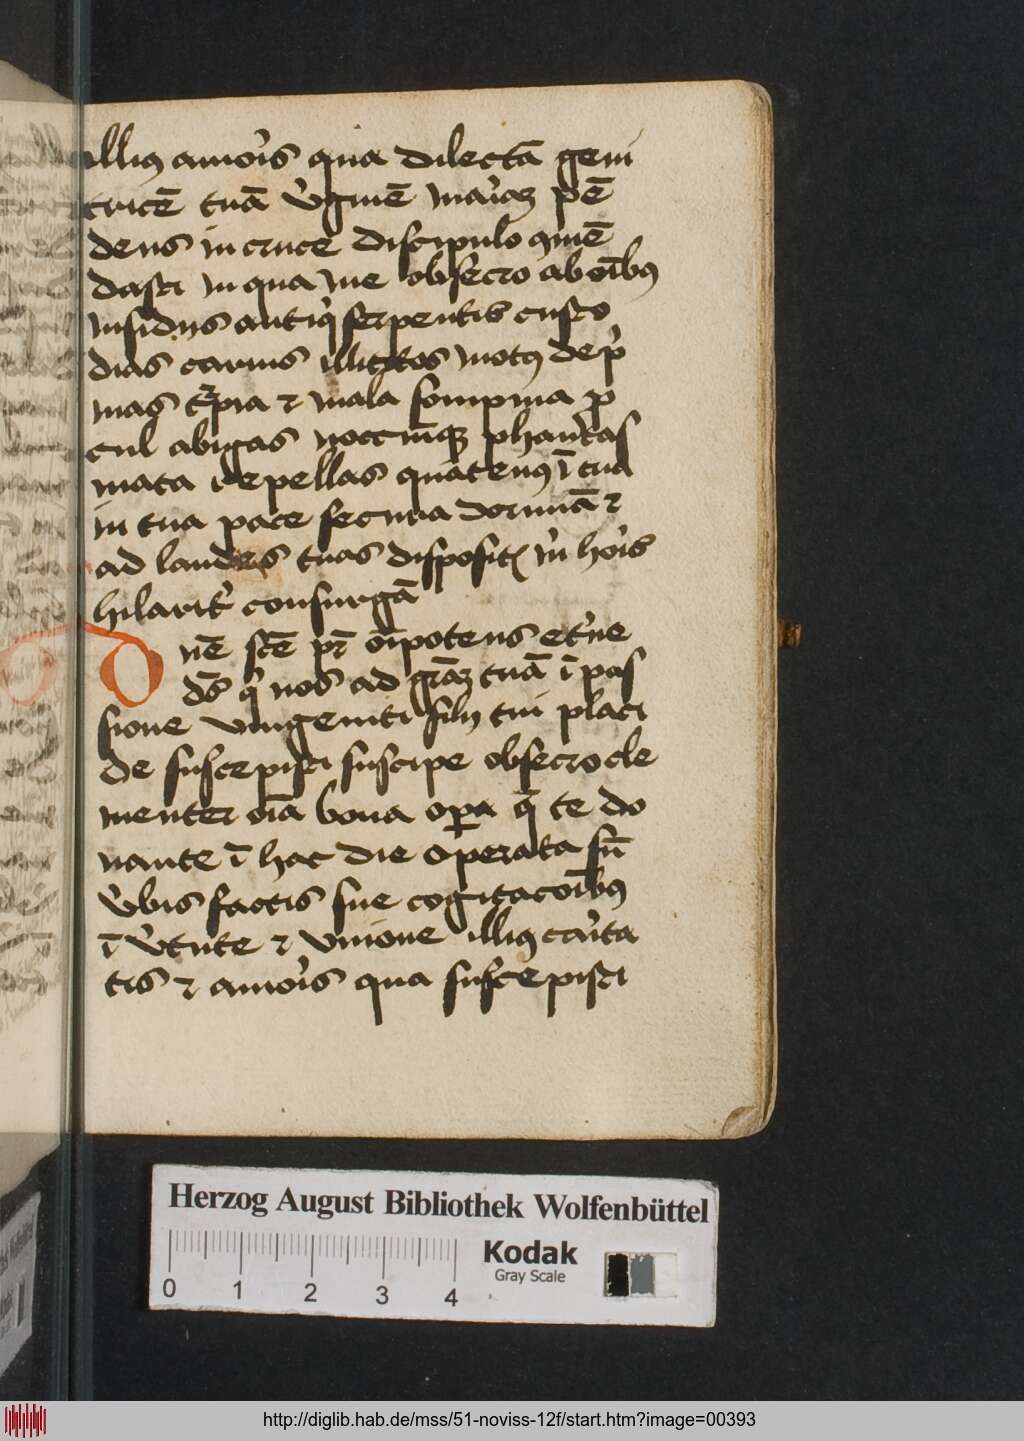 illiꝰ amoris qua dilectā geni
tricē tuā v̓ginē mariaꝫ pē
dens in cruce discipulo ꝯmē
dasti in qua me obsecro ab oībꝰ
insidijs antiqͥ serpentis custo
dias carnis illicitos motꝰ dep̓
mas t̄pia ⁊ mala sompnia ꝓ
cul abigas noctuīqꝫ phantas
mata repellas quatenꝰ ī tua
in tua pace secura dormiā ⁊
ad laudes tuas disposit horis
hilarit̓ consurgā
D nē scē pr̄ oīpotens et̓ne
ds̄ qͥ nos ad gr̄aꝫ tuā ī pas
sione vnigeniti filij tui placi
de suscepisti suscipe obsecro cle
menter oīa bona oꝑa q̄ te do
nante ī hac die operata sū
v̓bis factis siue cogitacoībꝰ
ī v̓tute ⁊ vnione illiꝰ carita
tis ⁊ amoris qua suscepisti
Herzog August Bibliothek Wolfenbüttel
Kodak
Gray Scale
0 1 2 3 4
http://diglib.hab.de/mss/51-noviss-12f/start.htm?image=00393